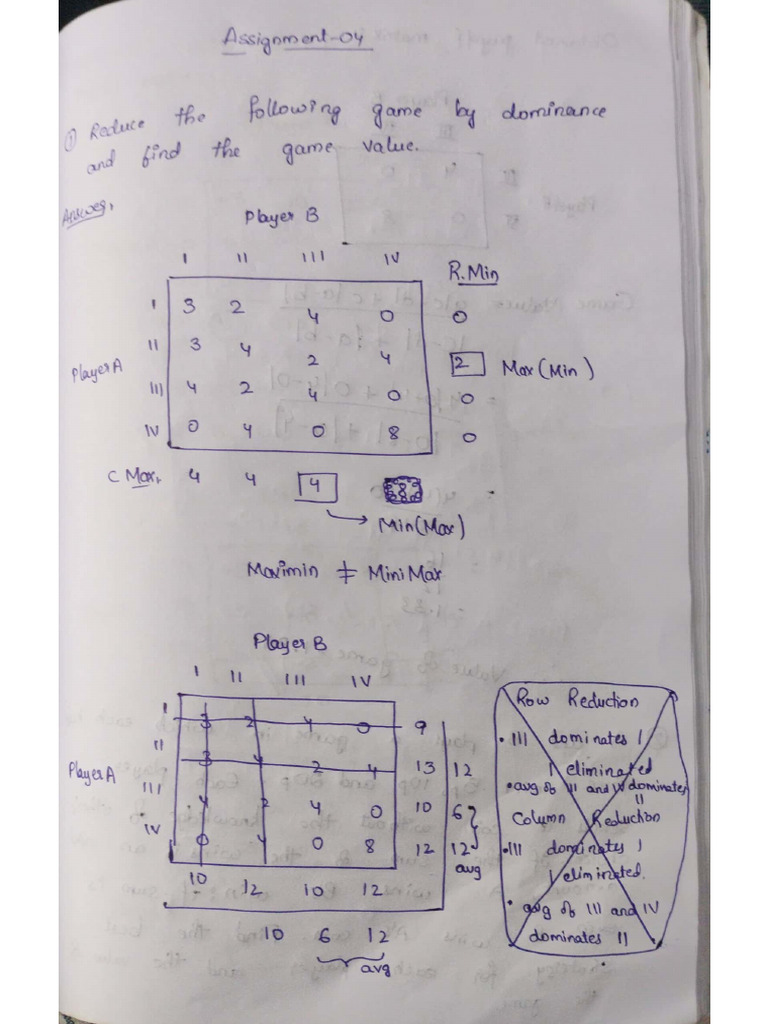 Assignment-04
① Reduce the following game by dominance
and find the game value.
Answer,
Player B
I II III IV R.Min
I 3 2 4 0 0
Player A II 3 4 2 4 2 Max(Min)
III 4 2 4 0 0
IV 0 4 0 8 0
C Max, 4 4 4 8
Min(Max)
Maximin ≠ MiniMax
Player B
I II III IV
I 3 2 4 0 9
II 3 4 2 4 13 12
Player A
III 4 2 4 0 10 6
IV 0 4 0 8 12 12
avg
10 12 10 12
10 6 12
avg
Row Reduction
• III dominates I
I eliminated
• avg of III and IV dominates
II
Column Reduction
• III dominates I
I eliminated.
• avg of III and IV
dominates II